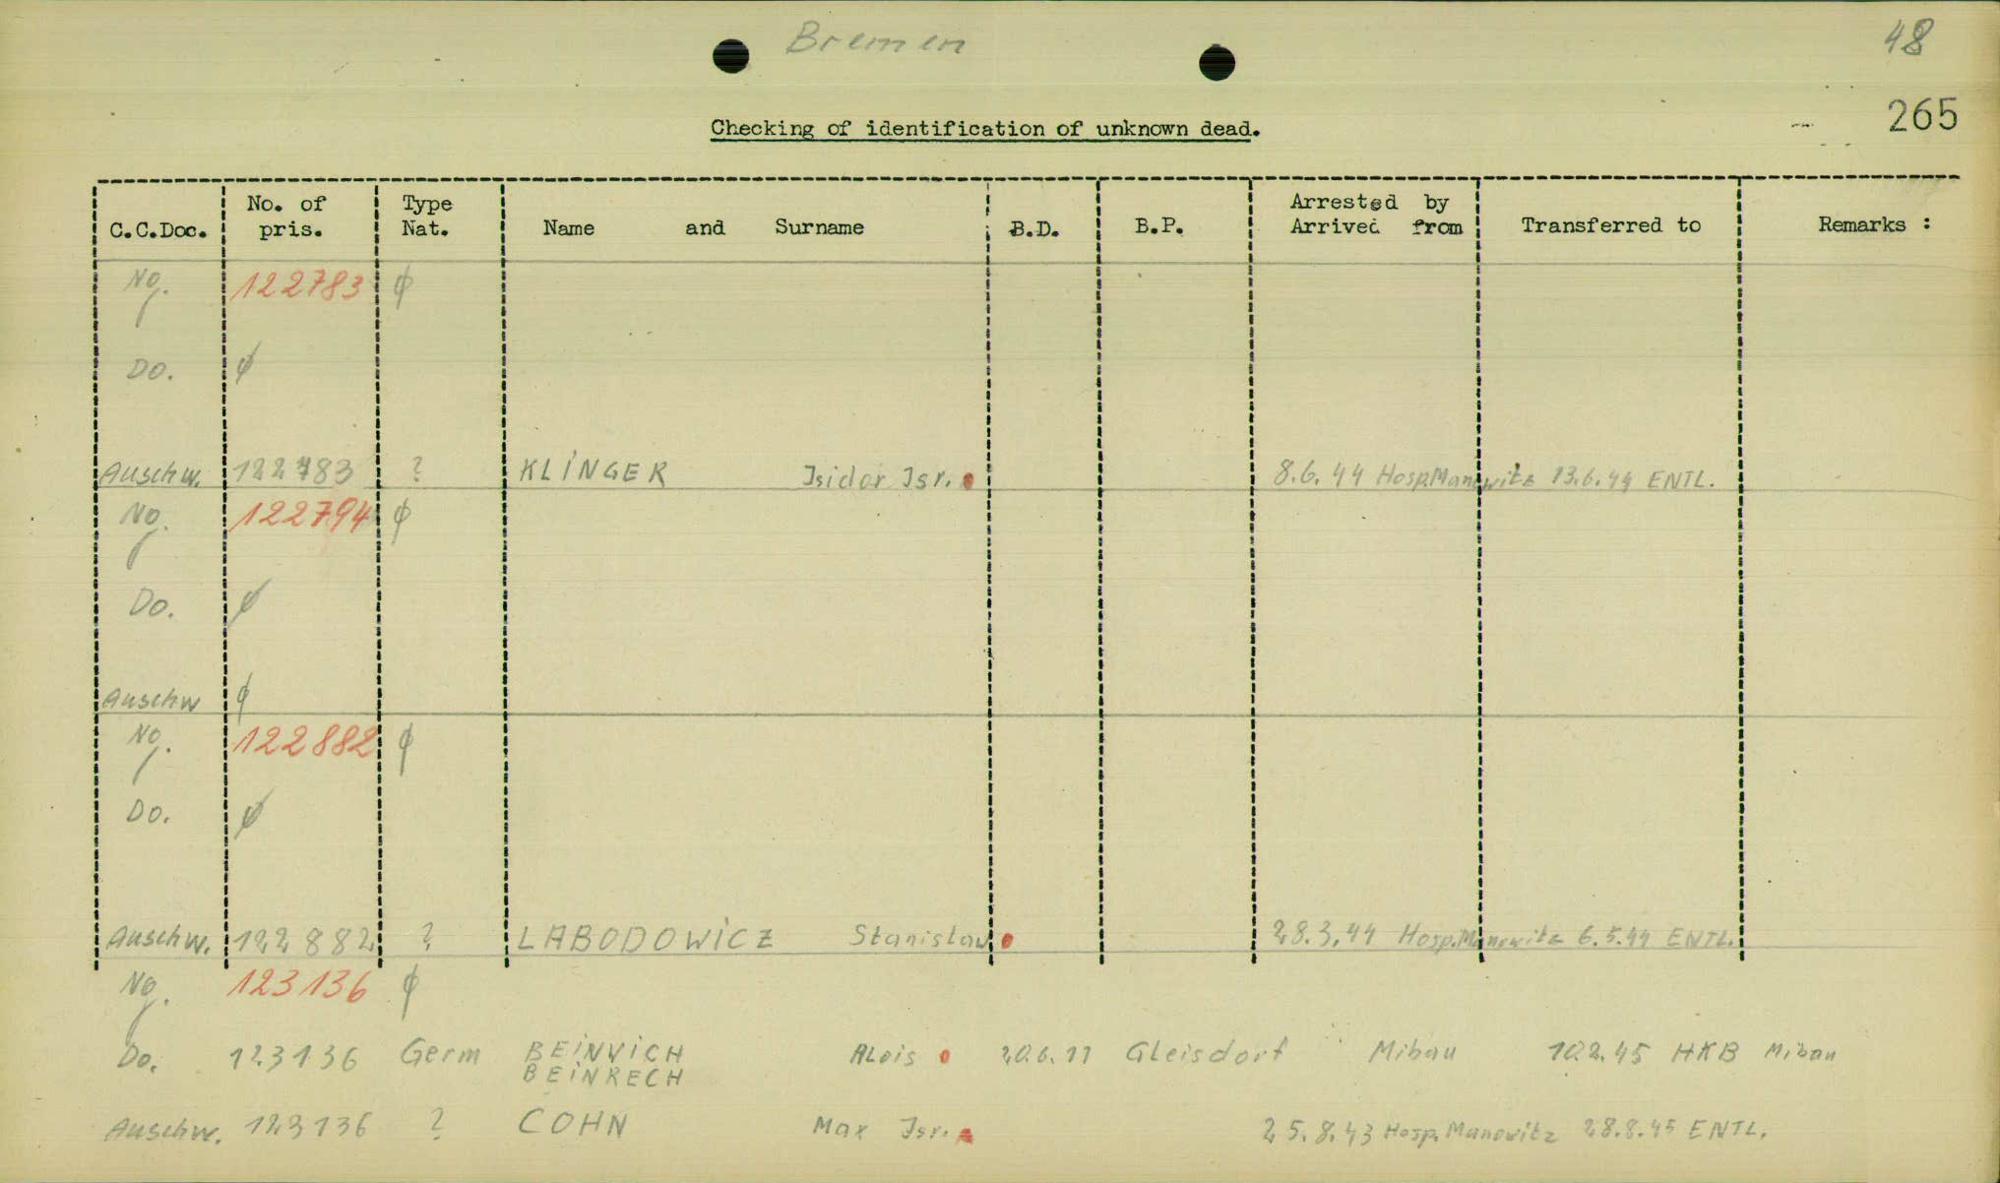 Bremen
48
265
Checking of identification of unknown dead.
C.C.Doc. No. of pris. Type Nat. Name and Surname B.D. B.P. Arrested by Arrived from Transferred to Remarks :
Ng. 122783 ϕ
Do. ϕ
Auschw. 122783 ? KLINGER Isidor Isr. 8.6.44 Hosp.Manowitz 13.6.44 ENTL.
Ng. 122794 ϕ
Do. ϕ
Auschw ϕ
Ng. 122882 ϕ
Do. ϕ
Auschw. 122882 ? LABODOWICZ Stanislaw 28.3.44 Hosp.Manowitz 6.5.44 ENTL.
Ng. 123136 ϕ
Do. 123136 Germ BEINVICH ALois 20.6.11 Gleisdorf Mibau 10.2.45 HKB Mibau
BEINRECH
Auschw. 123136 ? COHN Max Isr. 25.8.43 Hosp.Manowitz ENTL.